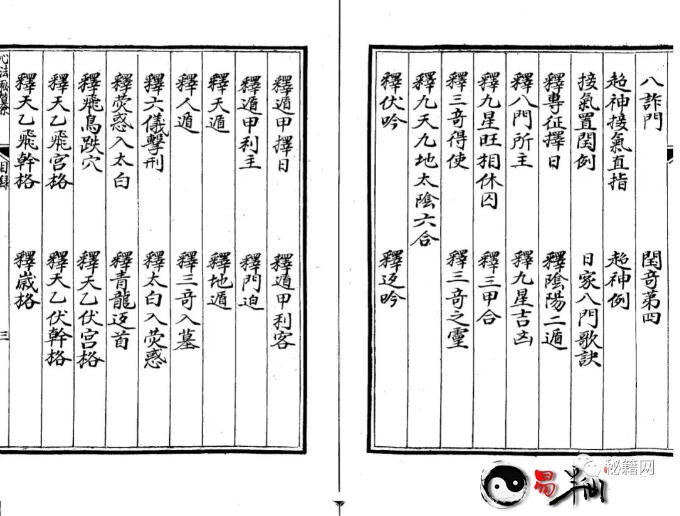 八詐門 閏奇第四
超神接氣直指 超神例
接氣置閏例 日家八門歌訣
釋專征擇日 釋陰陽二遁
釋八門所主 釋九星吉凶
釋九星旺相休囚 釋三甲合
釋三奇得使 釋三奇之靈
釋九天九地太陰六合
釋伏吟 釋返吟
釋遁甲擇日 釋遁甲利客
釋遁甲利主 釋門迫
釋天遁 釋地遁
釋人遁 釋三奇入墓
釋六儀擊刑 釋太白入熒惑
釋熒惑入太白 釋青龍返首
釋飛鳥跌穴 釋天乙伏宮格
釋天乙飛宮格 釋天乙伏幹格
釋天乙飛幹格 釋歲格
目錄
三
易半仙
秘籍网